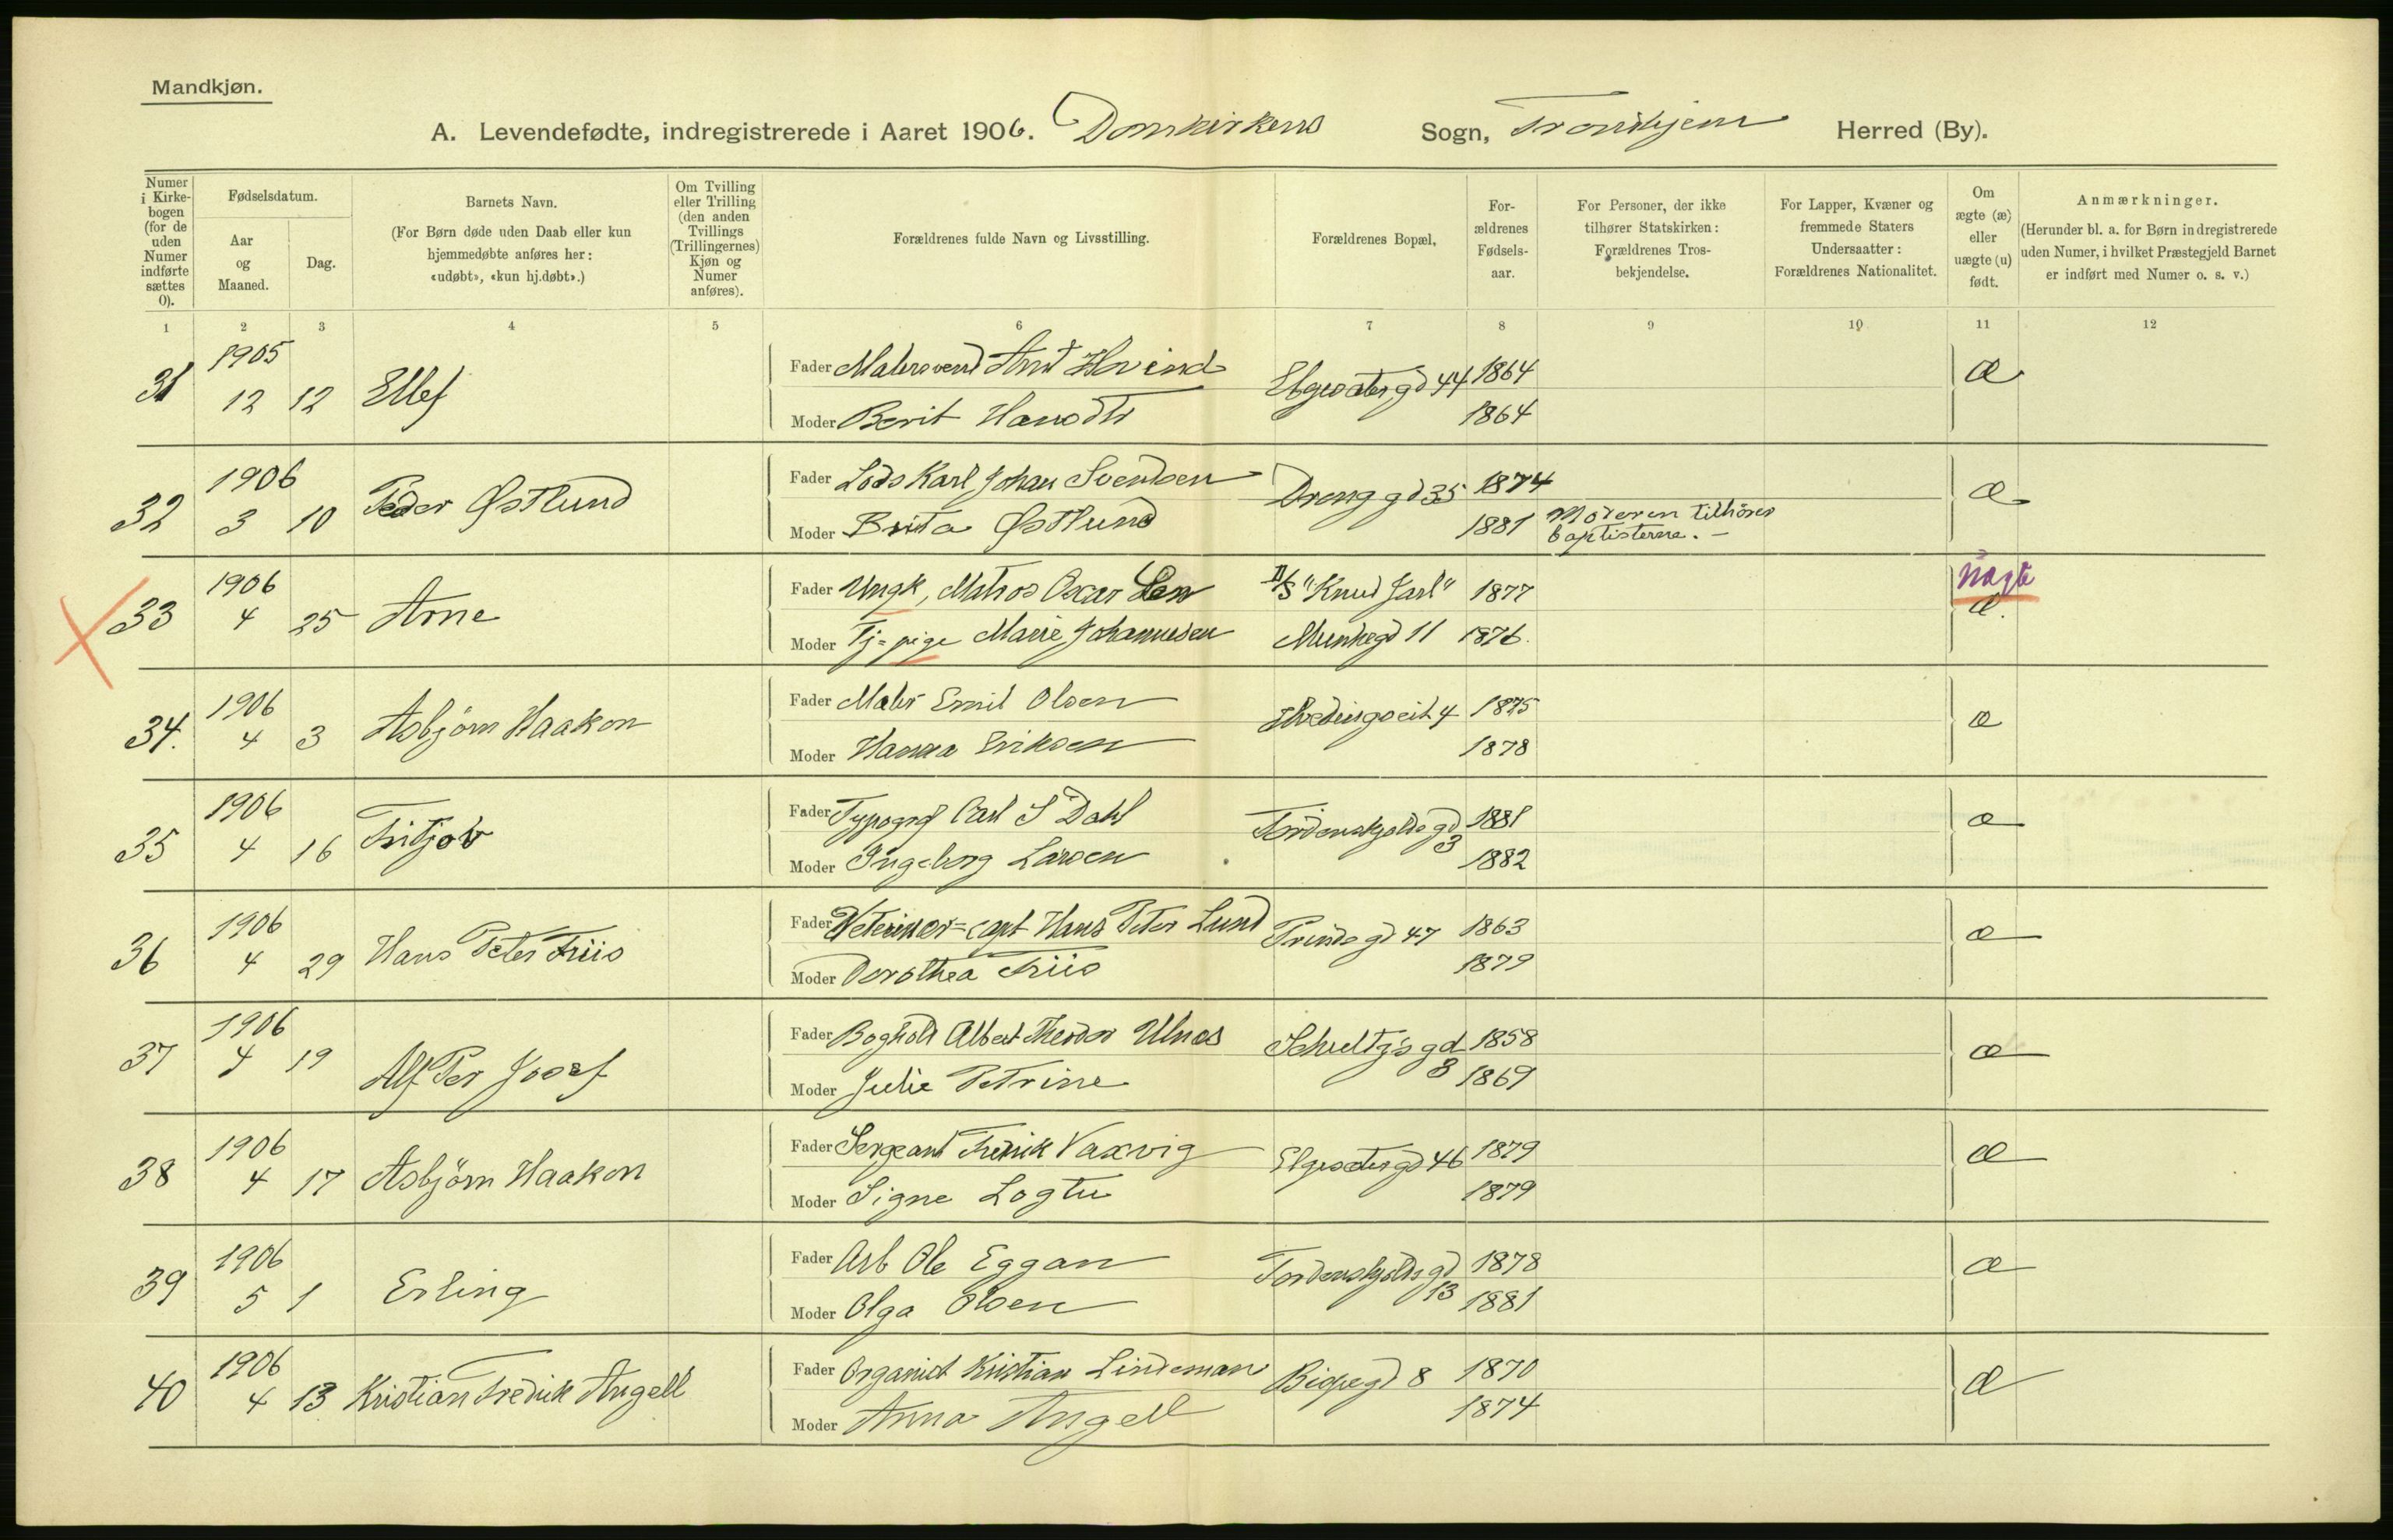 Mandkjøn.
A. Levendefødte, indregistrerede i Aaret 1906. Domkirkens Sogn, Trondhjem Herred (By).
Numer i Kirke-bogen (for de uden Numer indførte sættes 0).
Fødselsdatum.
Aar og Maaned.
Dag.
Barnets Navn.
(For Børn døde uden Daab eller kun hjemmedøbte anføres her: «udøbt», «kun hj.døbt».)
Om Tvilling eller Trilling (den anden Tvillings (Trillingernes) Kjøn og Numer anføres).
Forældrenes fulde Navn og Livsstilling.
Forældrenes Bopæl,
For-ældrenes Fødsels-aar.
For Personer, der ikke tilhører Statskirken: Forældrenes Tros-bekjendelse.
For Lapper, Kvæner og fremmede Staters Undersaatter: Forældrenes Nationalitet.
Om ægte (æ) eller uægte (u) født.
Anmærkninger.
(Herunder bl. a. for Børn indregistrerede uden Numer, i hvilket Præstegjeld Barnet er indført med Numer o. s. v.)
1 2 3 4 5 6 7 8 9 10 11 12
31 1905 12 12 Ellef
Fader Malersvend Arnt Hovind Elgesætergd 44 1864 æ
Moder Berit Hansdtr 1864
32 1906 3 10 Peder Østlund
Fader Lods Karl Johan Svendsen Dronggd 35 1874 æ
Moder Brita Østlund 1881 Moderen tilhører baptisterne. –
33 1906 4 25 Arne
Fader Ungk, Matros Oscar Len D/S "Knud Jarl" 1877 uægte æ.
Moder Tj=pige Marie Johannesen Munkegd 11 1876.
34. 1906 4 3 Asbjörn Haakon
Fader Maler Emil Olsen 4 1875 æ
Moder Hanna Eriksen 1878
35 1906 4 16 Fritjov
Fader Typograf Carl S Dahl Tordenskjoldsgd 3 1881 æ
Moder Ingeborg Larsen 1882
36 1906 4 29 Hans Peter Friis
Fader Veterinær=capt Hans Peter Lund Prinds gd 47 1863 æ
Moder Dorothea Friis 1879
37 1906 4 19 Alf Per Josef
Fader Boghold Albert Theodor Ulnes Schultz's gd 8 1858 æ
Moder Julie Petrine 1869
38 1906 4 17 Asbjörn Haakon
Fader Sergeant Fredrik Vaxvig Elgesætergd 46 1879 æ
Moder Signe Logtu 1879
39 1906 5 1 Erling
Fader Arb Ole Eggan Tordenskjoldsgd 13 1878 æ
Moder Olga Olsen 1881
40 1906 4 13 Kristian Fredrik Angell
Fader Organist Kristian Lindeman Bispegd 8 1870 æ
Moder Anna Angell 1874